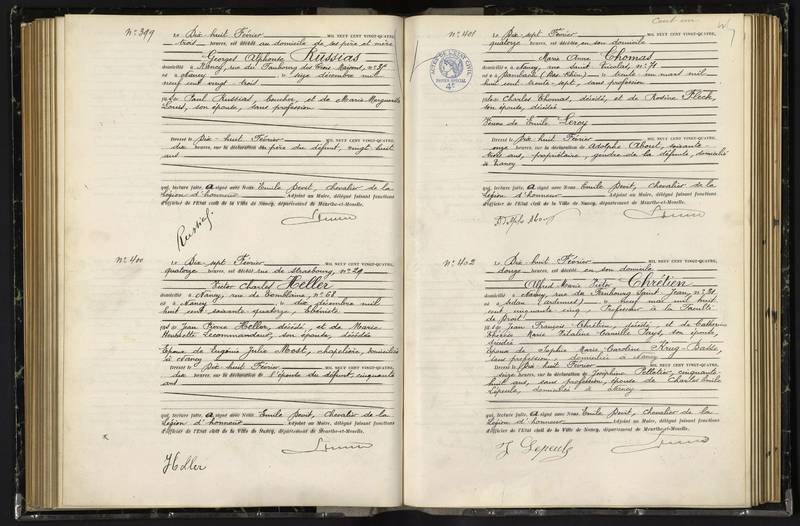 N° 399
Le Dix-huit Février MIL NEUF CENT VINGT-QUATRE,
trois heures, est décédé au domicile de ses père et mère
Georges Alphonse Russias
domicilié à Nancy, rue du Faubourg des Trois Maisons, n° 37
né à Nancy le seize décembre mil
neuf cent vingt-trois
fils de Paul Russias, boucher, et de Marie Marguerite
son épouse, sans profession
Dressé le Dix-huit Février MIL NEUF CENT VINGT-QUATRE,
dix heures, sur la déclaration du père du défunt, vingt-huit
ans
qui, lecture faite, a signé avec Nous, Emile Devit, chevalier de la
Légion d'honneur adjoint au Maire, délégué faisant fonctions
d'officier de l'Etat civil de la Ville de Nancy, département de Meurthe-et-Moselle.
Russias
N° 400
Le Dix-sept Février MIL NEUF CENT VINGT-QUATRE,
quatorze heures, est décédé rue de Strasbourg, n° 29
Victor Charles Heller
domicilié à Nancy, rue de n° 68
né à Nancy le dix décembre mil
huit cent soixante-quatorze, Ebéniste
fils de Jean Pierre Heller, décédé, et de Marie
Henriette Lecommandeur, son épouse, décédée
Epoux de Eugénie Julie Most, chapelière, domiciliée
à Nancy
Dressé le Dix-huit Février MIL NEUF CENT VINGT-QUATRE,
dix heures, sur la déclaration de l'épouse du défunt, cinquante
ans
qui, lecture faite, a signé avec Nous Emile Devit, Chevalier de la
Légion d'honneur adjoint au Maire, délégué faisant fonctions
d'officier de l'Etat civil de la Ville de Nancy, département de Meurthe-et-Moselle.
Heller
N° 401
Le Dix-sept Février MIL NEUF CENT VINGT-QUATRE,
quatorze heures, est décédée en son domicile
Marie Anne Thomas
domiciliée à Nancy, rue Saint Nicolas, n° 71
née à Dambach (Bas-Rhin) le trente-un mars mil
huit cent trente-sept, sans profession
fille de Charles Thomas, décédé, et de Rosine Fleck,
son épouse, décédée
Veuve de Emile Leroy
Dressé le Dix-huit Février MIL NEUF CENT VINGT-QUATRE,
onze heures, sur la déclaration de Adolphe About, soixante-
trois ans, propriétaire, gendre de la défunte, domicilié
à Nancy
qui, lecture faite, a signé avec Nous Emile Devit, chevalier de la
Légion d'honneur adjoint au Maire, délégué faisant fonctions
d'officier de l'Etat civil de la Ville de Nancy, département de Meurthe-et-Moselle.
Adolphe About
N° 402
Le Dix-huit Février MIL NEUF CENT VINGT-QUATRE,
douze heures, est décédé en son domicile
Alfred Marie Victor Chrétien
domicilié à Nancy, rue du Faubourg Saint Jean, n° 31
né à Sedan (Ardennes) le neuf mai mil huit
cent cinquante-cinq, Professeur à la Faculté
de Droit
fils de Jean François Chrétien, décédé, et de Catherine
Thérèse Marie Camille son épouse,
décédée
Epoux de Sophie Marie Caroline Krug-Basse,
sans profession, domiciliée à Nancy
Dressé le Dix-huit Février MIL NEUF CENT VINGT-QUATRE,
seize heures, sur la déclaration de Joséphine Pelletier, cinquante-
huit ans, sans profession, épouse de Charles Emile
Lepeule, domiciliée à Nancy
qui, lecture faite, a signé avec Nous Emile Devit, chevalier de la
Légion d'honneur adjoint au Maire, délégué faisant fonctions
d'officier de l'Etat civil de la Ville de Nancy, département de Meurthe-et-Moselle.
J Lepeule